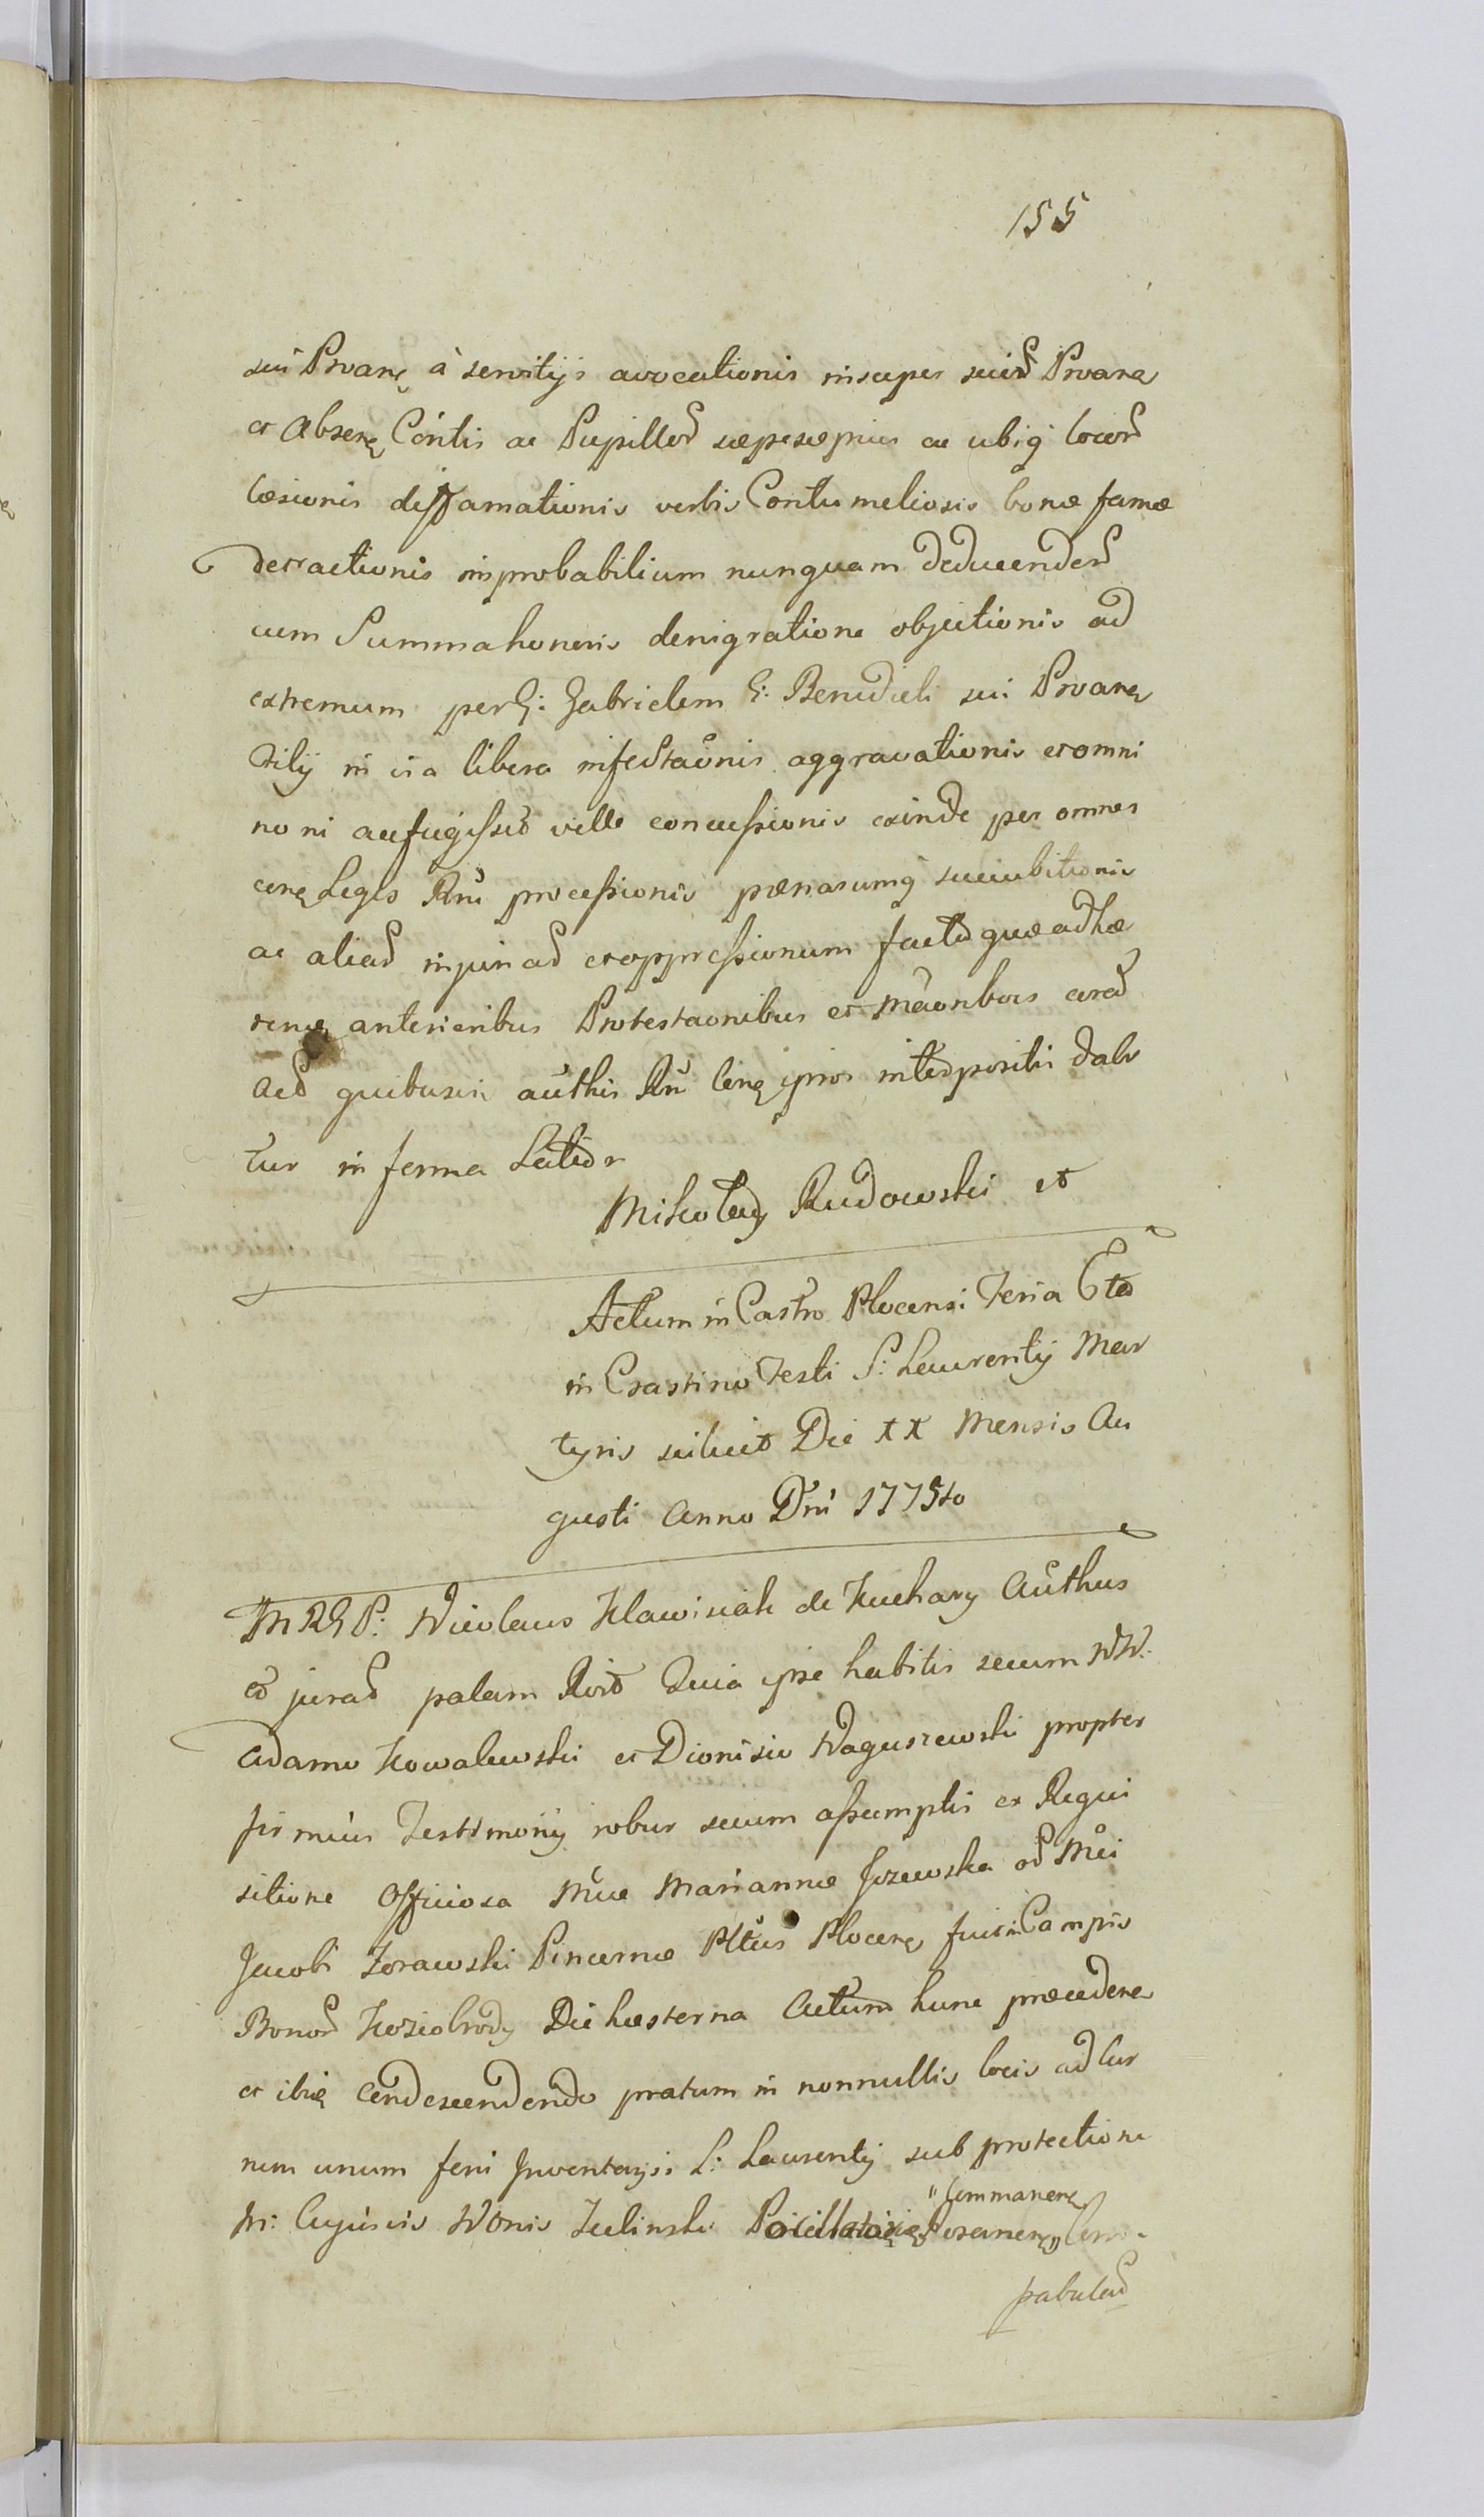 155
sui Proaṅę à servitijs avocationis insuper suiꝛ Proaṅę
et Absenę Coṅtis ac Pupilloꝛ sæpesæpius ac ubiq locoꝛ
læsionis diffamationis verbis Contumeliosis bonæ famæ
detractionis improbabilium nunquam deducendoꝛ
cum Summa honoris denigratione objectionis ad
extremum per G: Gabrielem G: Benedicti sui Proaṅę
filij in via libera infestaonis aggravationis et omni
no ni aufugisset velle concussionis exinde per omnes
cenę Legls Rṅi processionis pœnarumq succubitionis
ac aliaꝛ injuriaꝛ et oppressionum factaꝛ quæ adhæ
rendę anterioribus Protestaonibus et Maonibus coraꝛ
Acꝛ quibusvis authis Rṅ cenę ipsos interpositis dabi
tur in forma Latiori
Mikołay Rudowski et
Actum in Castro Plocensi Feria 6ta
in Crastino Festi S: Laurentij Mar
tyris scilicet Die XX Mensis Au
gusti Anno Dni 1775to
M RG P: Nicolaus Klawisiak de Kuchary Authus
et juraꝛ palam Rvit Quia ipse habitis secum NN:
Adamo Kowalewski et Dionisio Waguszewski propter
firmius Testimonij robur secum assumptis ex Requi
sitione Officiosa Mcæ Mariannæ Jozewska oꝛ Mci
Jacobi Zorawski Pincernæ Pltus Plocenę fuit in Campis
Bonoꝛ Koziobrody Die hæsterna Actum hunc præcedenę
et ibię Condescendendo pratum in nonnullis locis ad cur
rum unum feni Inventaysi L: Laurentij sub protectione
M: Cujusvis Wonis Zielinski Posenenę "Commanenę
pabulaꝛ